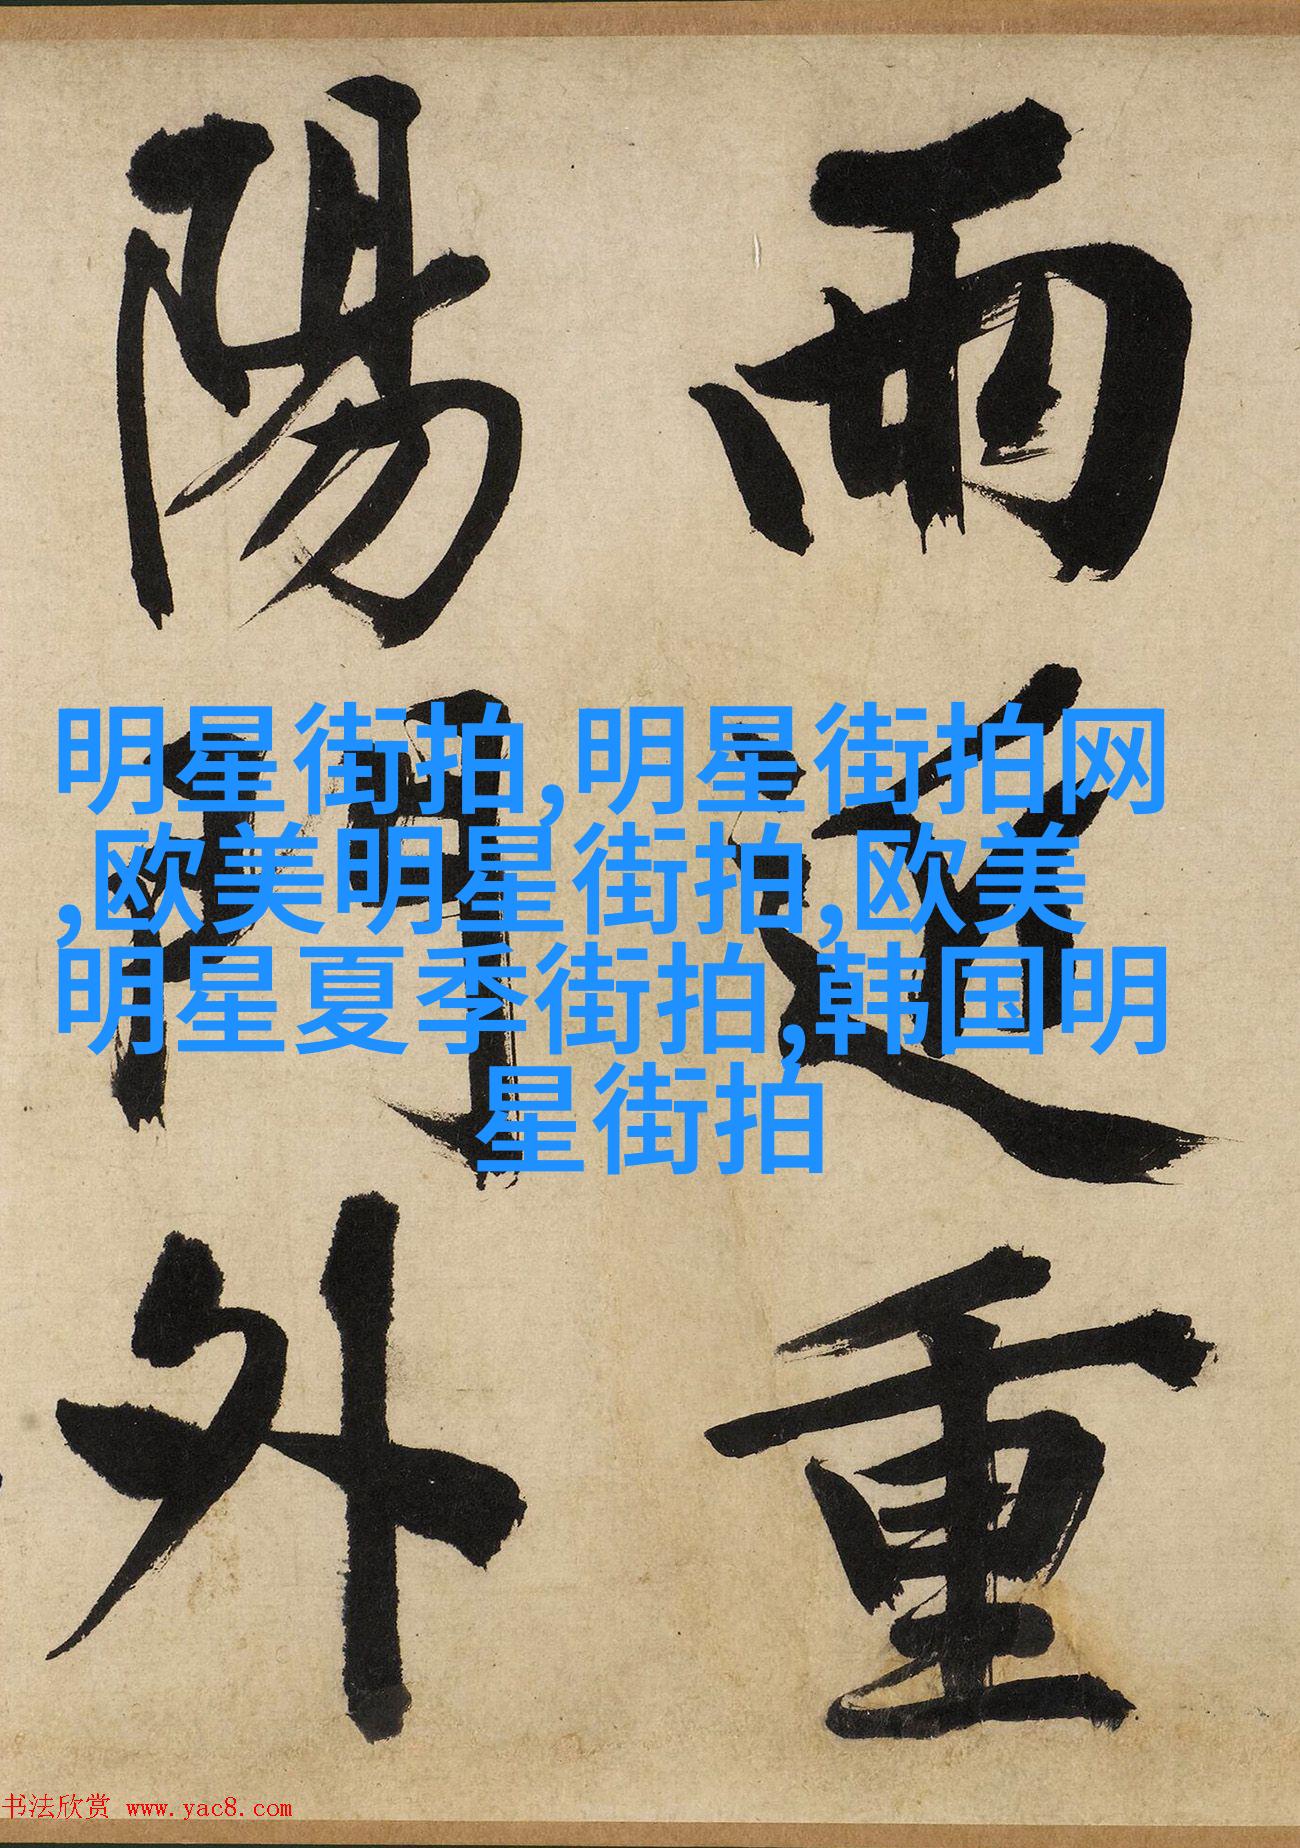 雨近重
陽門外
明星街拍,明星街拍网
,欧美明星街拍,欧美
明星夏季街拍,韩国明
星街拍
书法欣赏 www.yac8.com